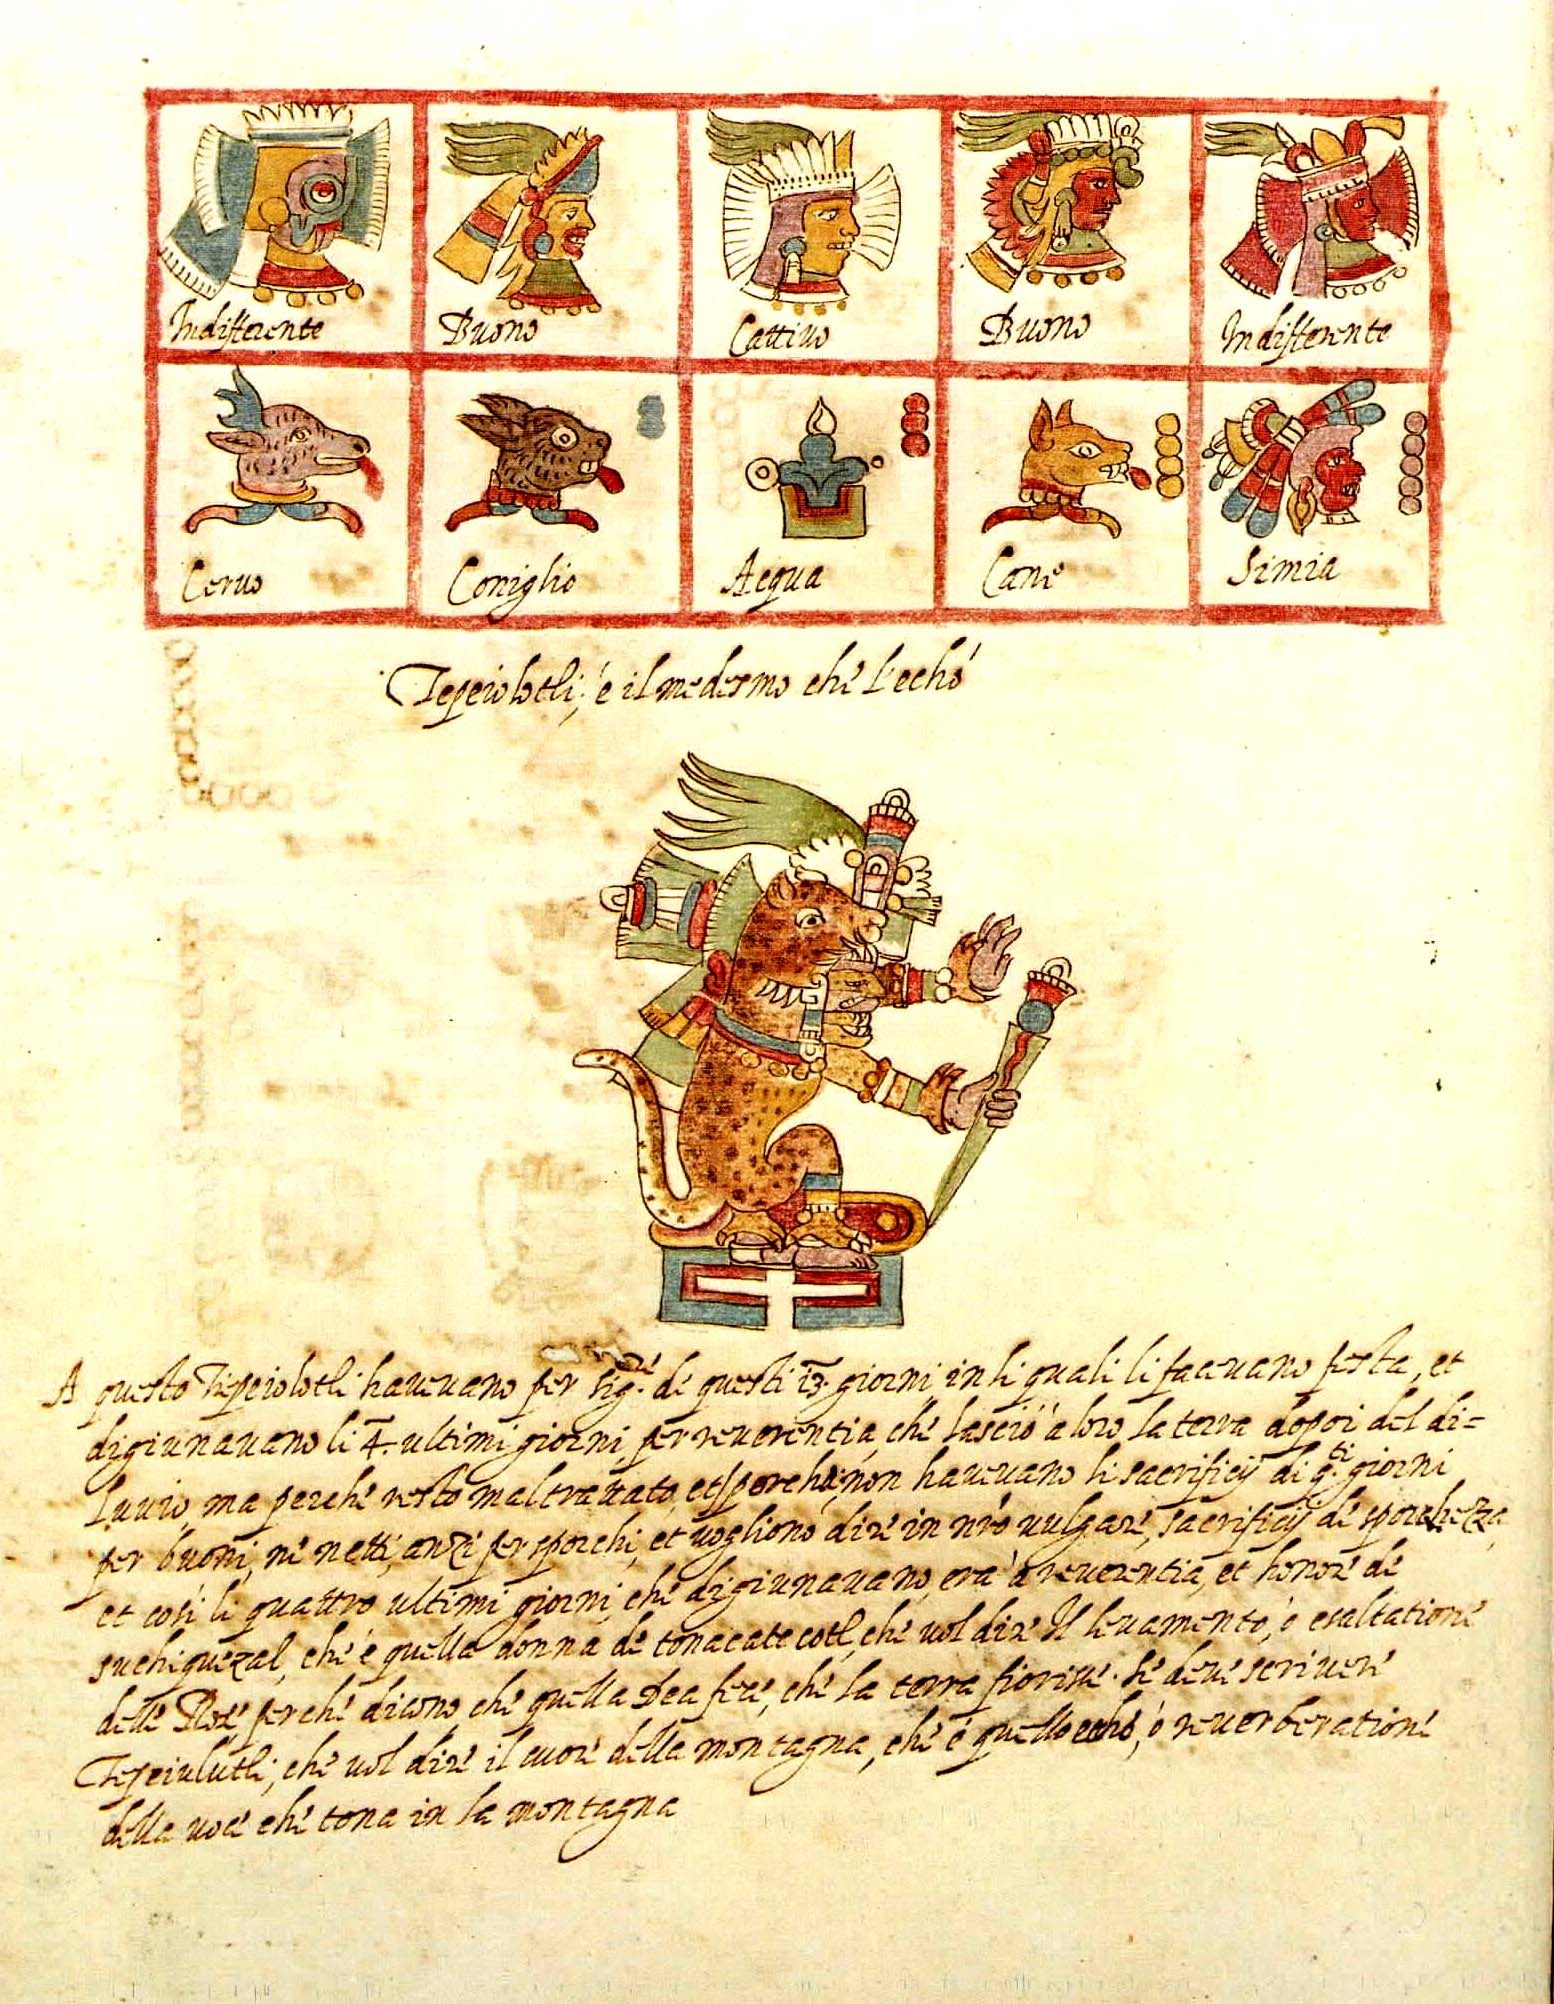 Indifferente
Buono
Cattiuo
Buono
Indifferente
Ceruo
Coniglio
Acqua
Cane
Simia
Tepeiolotli; é il medesmo ché l'echó
A questo Tepeiolotli haueuano per Sig.ré dé questi 13. giorni in li quali li faceuano festa, et
digiunauano li 4. ultimi giorni, per reuerentia, ché lasció á loro la terra dopoi del di=
luuio, ma perché resto maltrattato, et sporcha, non haueuano li sacrificij di q.ti giorni
per buoni, né netti, anzi per sporchi, et uogliono diré in nró uulgaré, sacrificij dé sporchezza,
et cosi li quattro ultimi giorni, ché digiunauano, era á reuerentia, et honoré dé
suchiquezal, ché é quella donna dé tonacatecotl, ché uol diré Il leuamento, ó esaltationé
dellé Rosé perché dicono ché quella Dea fecé, ché la terra fiorissé. Sé deué scriueré
Tepeiulutli, ché uol diré il cuoré della montagna, ché é quello echó, ó reuerberationé
della uocé ché tona in la montagna